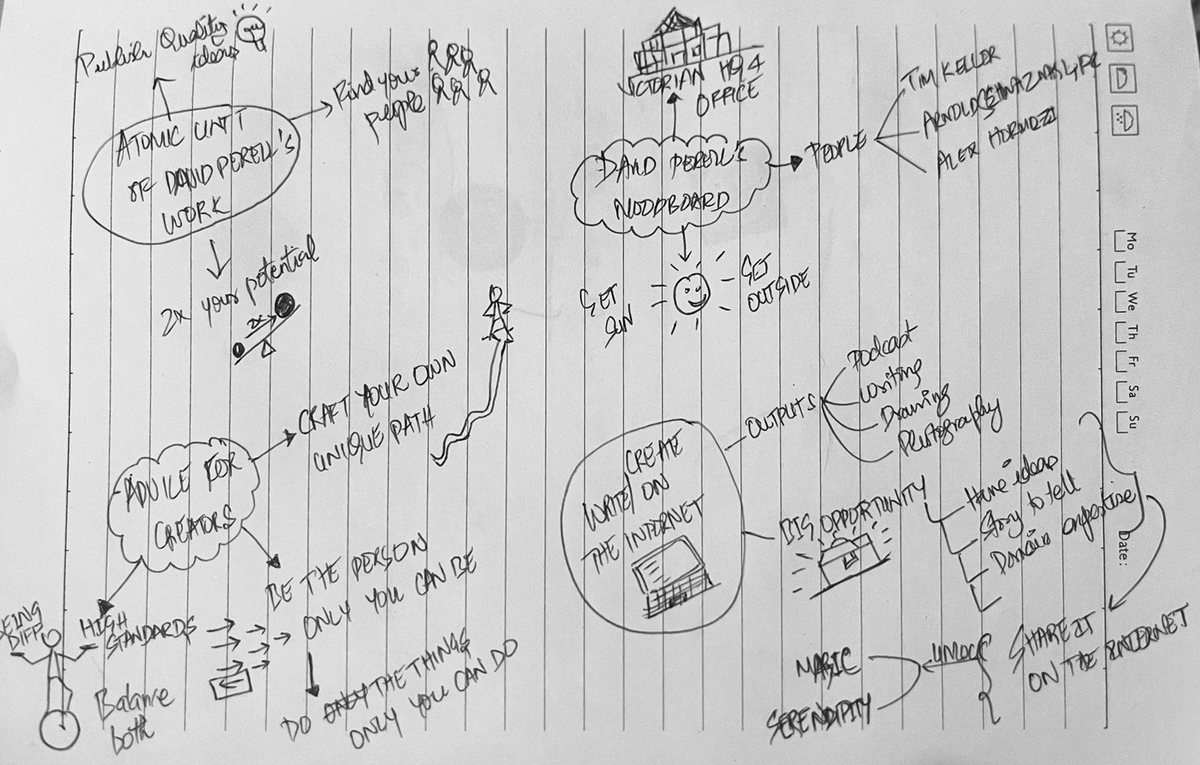 Publish Quality
ideas
ATOMIC UNIT
OF DAVID PERELL'S
WORK
Find your
people
2x your potential
2x
VICTORIAN
OFFICE
DAVID PERELL'S
MOODBOARD
PEOPLE
TIM KELLER
ARNOLD
ALEX HORMOZI
GET
SUN
GET
OUTSIDE
ADVICE FOR
CREATORS
CRAFT YOUR OWN
UNIQUE PATH
BE THE PERSON
ONLY YOU CAN BE
DO ONLY THE THINGS
ONLY YOU CAN DO
HIGH
STANDARDS
BEING
DIFF
Balance
both
CREATE
WRITE/ ON
THE INTERNET
OUTPUTS
Podcast
Writing
Drawing
Photography
BIG OPPORTUNITY
Have ideas
Story to tell
Domain expertise
SHARE IT
ON THE INTERNET
UNLOCK
MAGIC
SERENDIPITY
Mo
Tu
We
Th
Fr
Sa
Su
Date: